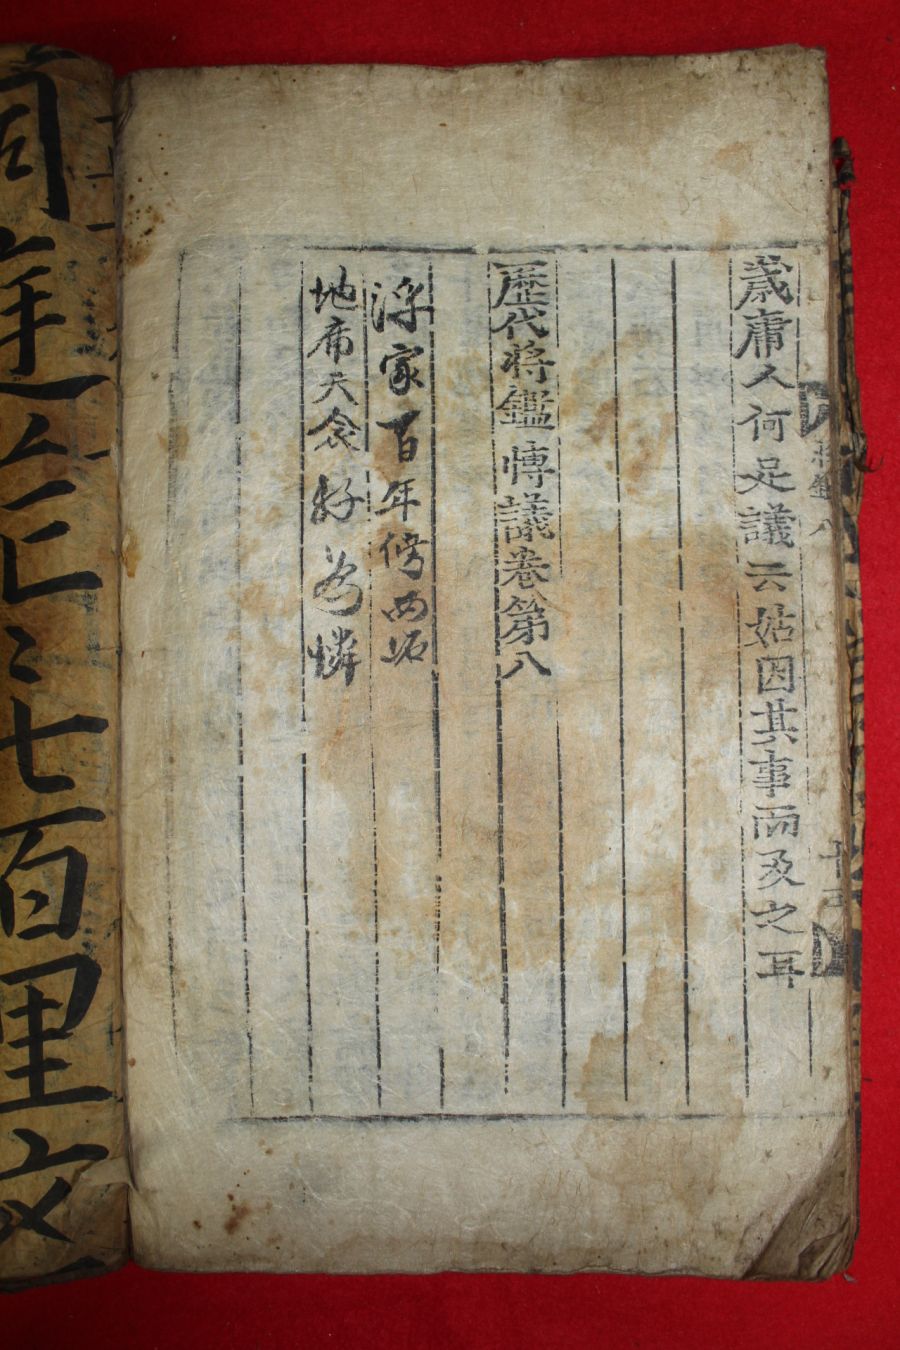 歲庸人何足議云姑因其事而及之耳
歷代將鑑博議卷第八
浮家百年傍兩
地席天衾好為憐
七百里